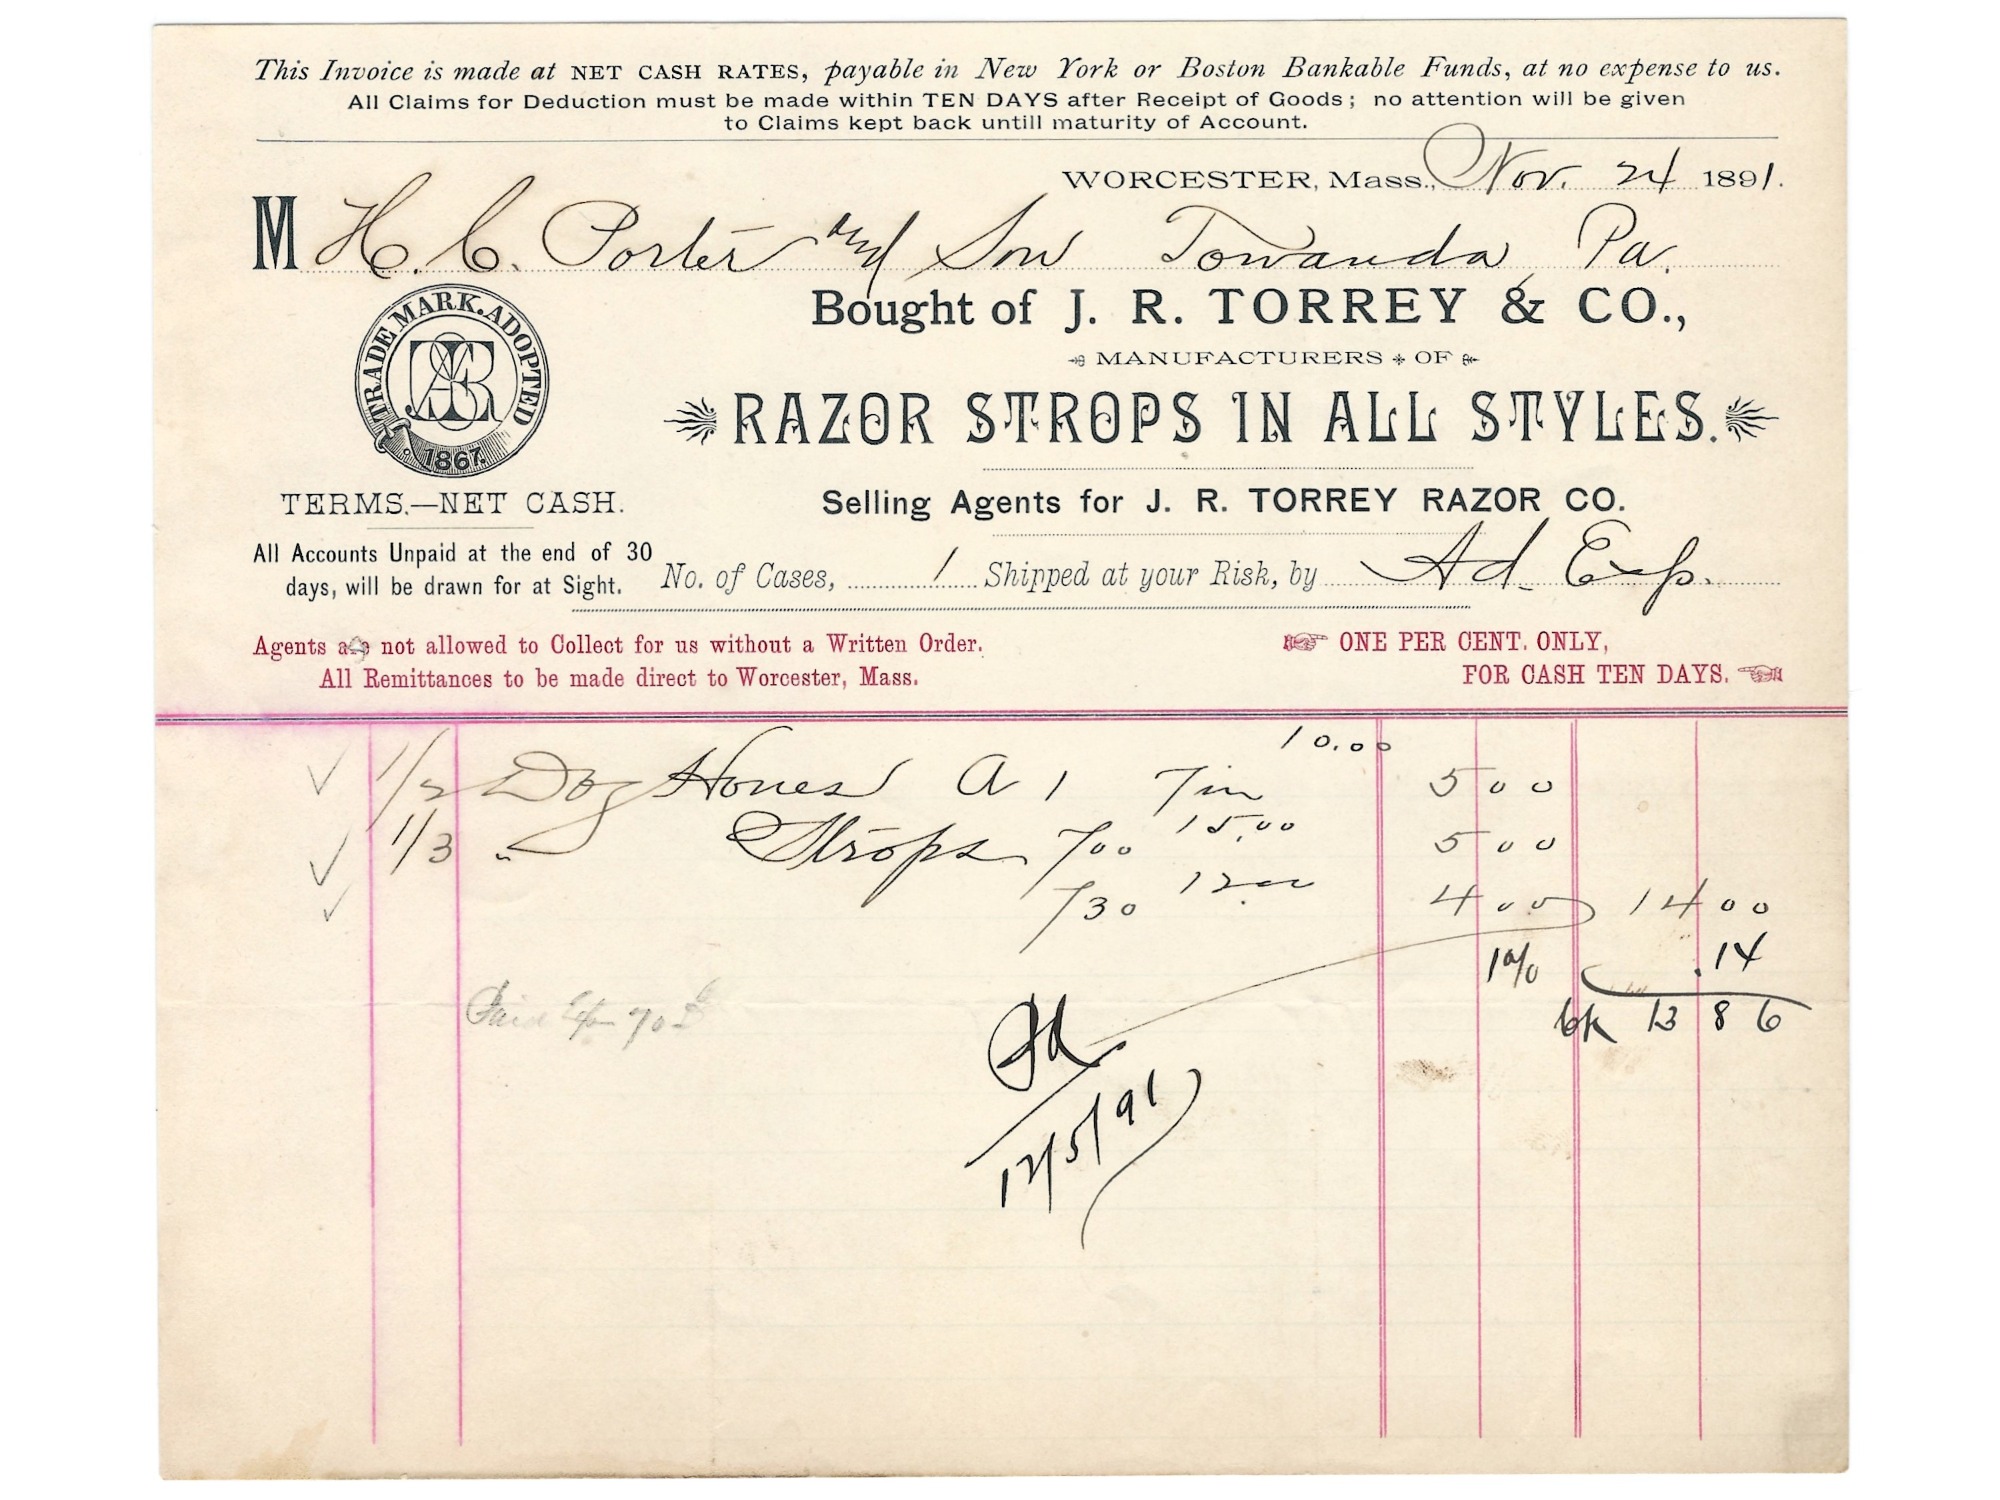 This Invoice is made at NET CASH RATES, payable in New York or Boston Bankable Funds, at no expense to us.
All Claims for Deduction must be made within TEN DAYS after Receipt of Goods; no attention will be given
to Claims kept back untill maturity of Account.
WORCESTER, Mass., Nov. 24 1891.
M H. C. Porter and Son Towanda Pa.
TRADE MARK. ADOPTED
1867.
Bought of J. R. TORREY & CO.,
MANUFACTURERS OF
RAZOR STROPS IN ALL STYLES.
TERMS.—NET CASH.
Selling Agents for J. R. TORREY RAZOR CO.
All Accounts Unpaid at the end of 30
days, will be drawn for at Sight.
No. of Cases, 1 Shipped at your Risk, by Ad. Exp.
Agents are not allowed to Collect for us without a Written Order.
All Remittances to be made direct to Worcester, Mass.
ONE PER CENT. ONLY,
FOR CASH TEN DAYS.
1/2 Doz Hones A 1 7 in 10.00 5 00
1/3 " Strops 700 15.00 5 00
730 12.00 4 00 14 00
1% .14
13 86
Paid 70
Pd
12/5/91